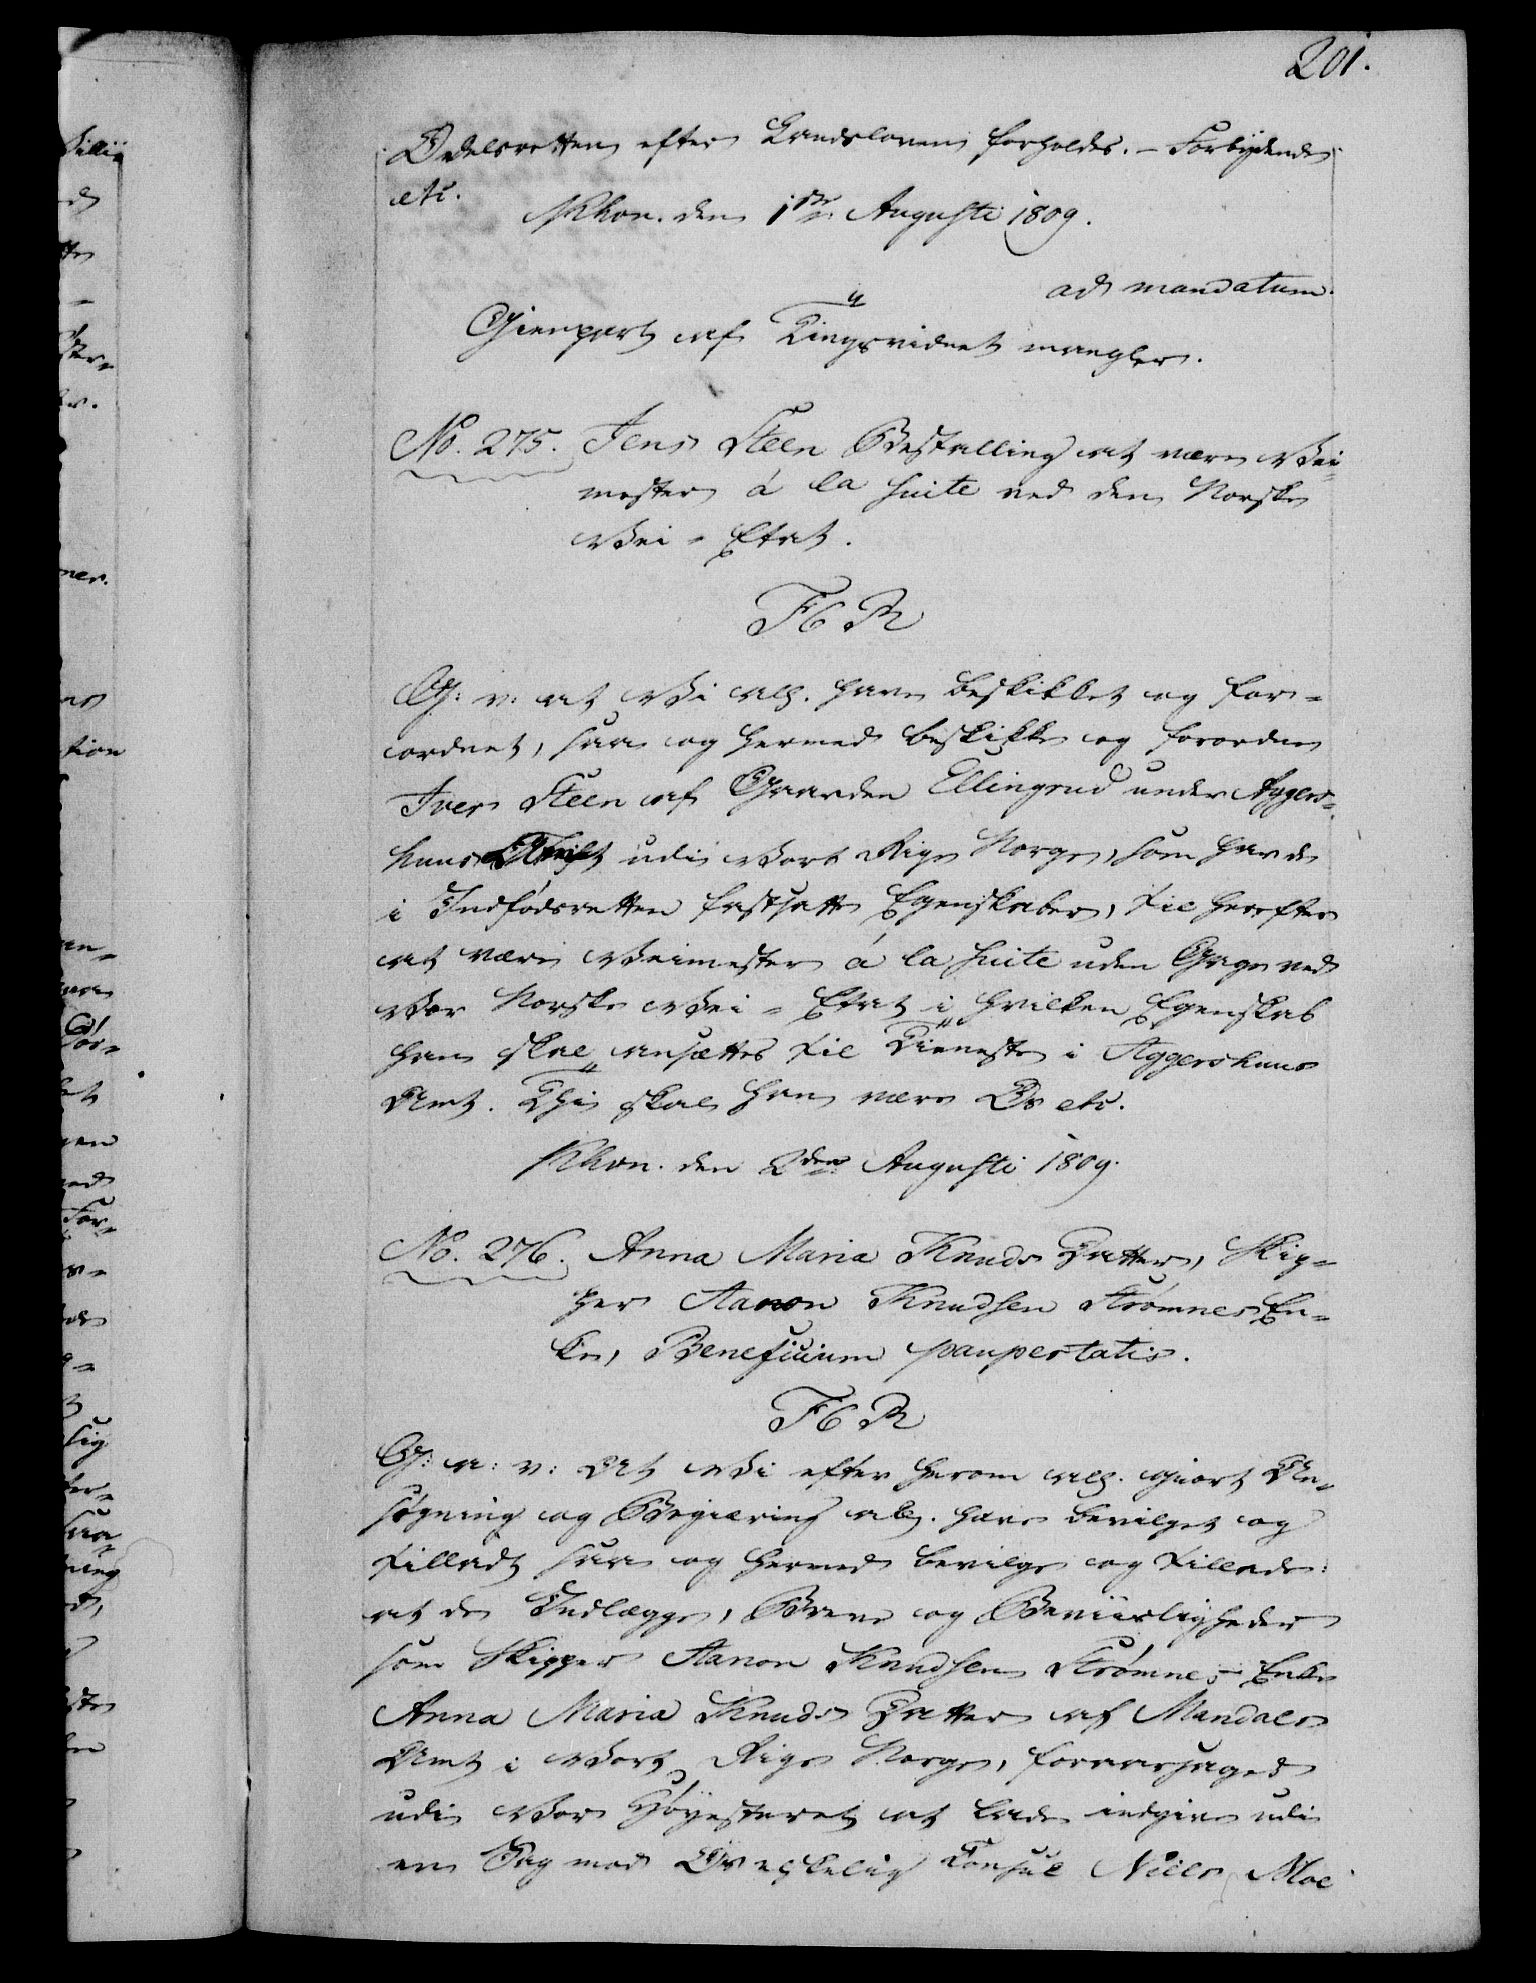 201.
Odelsretten efter Landsloven forholdes. – Forbydende
etc.
Khvn. den 1ste Augusti 1809.
ad mandatum.
Gienpart af Tingsvidnet mangler.
No. 275. Jens Steen Bestalling at være Vei-
mester á la suite ved den Norske
Vei-Etat.
F6R
G: v: at Vi allr. have beskikket og for-
ordnet, saa og hermed beskikke og forordne
Iver Steen af Gaarden Ellingsrud under Aggers-
huus udi Vort Rige Norge, som har de
i Indfødsretten fastsatte Egenskaber, til herefter
at være Veimester á la suite uden Gage ved
Vor Norske Vei-Etat i hvilken Egenskab
han skal ansættes til Tieneste i Aggershuus
Amt. Thi skal han være Os etc.
Khvn. den 2den Augusti 1809.
No. 276. Anna Maria Knuds Datter, Skip-
per Aanon Knudsen Strømnes En-
ke, Beneficium paupertatis.
F6R
G: a: v: At Vi efter herom allr. giort An-
søgning og Begiering allr. have bevilget og
tilladt saa og hermed bevilge og tillade:
at de Indlægge, Breve og Beviisligheder
som Skipper Aanon Knudsen Strømnes Enke
Anna Maria Knuds Datter af Mandals
Amt i Vort Rige Norge, foraarsages
udi Vor Høyesteret at lade indgive udi
en Sag mod Os elskelig Consul Niels Moe